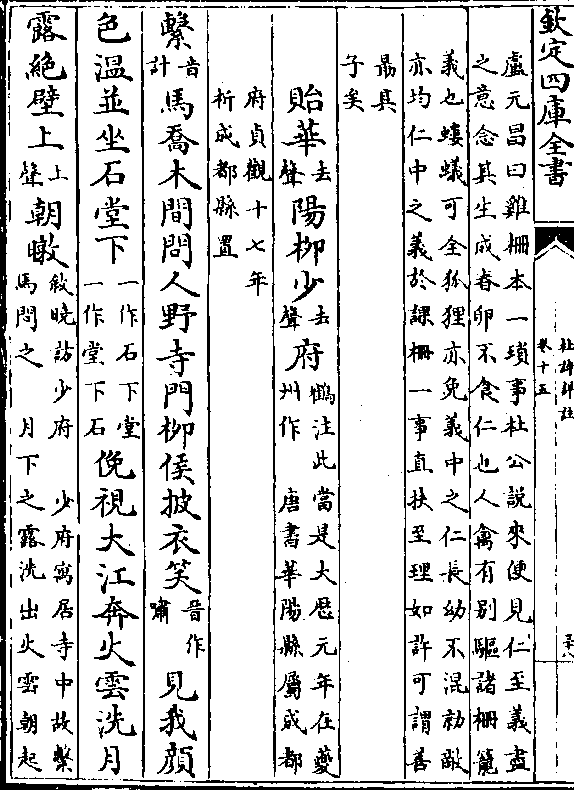 欽定四庫全書
杜詩詳註
卷十五
盧元昌曰雞柵本一瑣事杜公說來便見仁至義盡
之意念其生成春卵不食仁也人禽有别驅諸柵籠
義也螻蟻可全狐狸亦免義中之仁長幼不混勍敵
亦均仁中之義於課柵一事直扶至理如許可謂善
勗其
子矣
貽華去聲陽柳少去聲府鶴注此當是大厯元年在夔州作 唐書華陽縣屬成都
府貞觀十七年析成都縣置
繫音計馬喬木間問人野寺門柳侯披衣笑晋作嘯見我顔
色溫並坐石堂下一作石下堂一作堂下石俛視大江奔火雲洗月
露絶壁上上聲朝暾敘曉訪少府 少府寓居寺中故繫馬問之 月下之露洗出火雲朝起